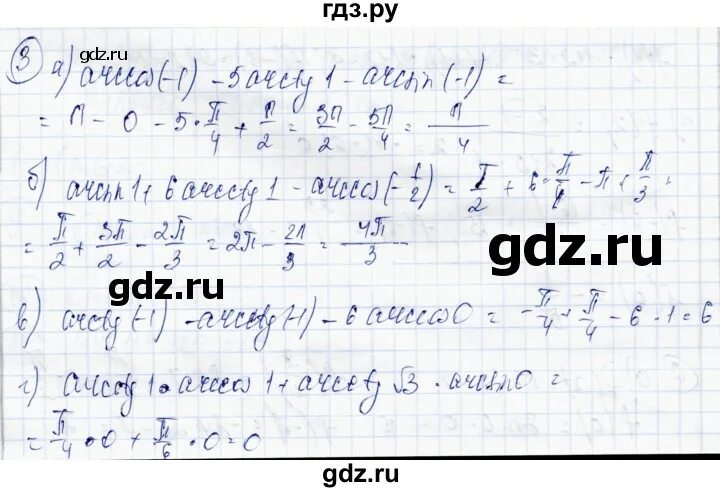 гдз.ру
gdz.ru
3 а) arccos(-1) - 5arcctg 1 - arcsin(-1) =
= π - 0 - 5·π/4 + π/2 = 3π/2 - 5π/4 = π/4
б) arcsin 1 + 6arcctg 1 - arccos(-1/2) = π/2 + 6·π/4 - π + π/3 =
= π/2 + 3π/2 - 2π/3 = 2π - 2π/3 = 4π/3
gdz.ru
gdz.ru
в) arctg(-1) - arcctg(-1) - 6arccos 0 = -π/4 + π/4 - 6·1 = 6
г) arcctg 1 · arccos 1 + arcctg √3 · arcsin 0 =
= π/4 · 0 + π/6 · 0 = 0
gdz.ru